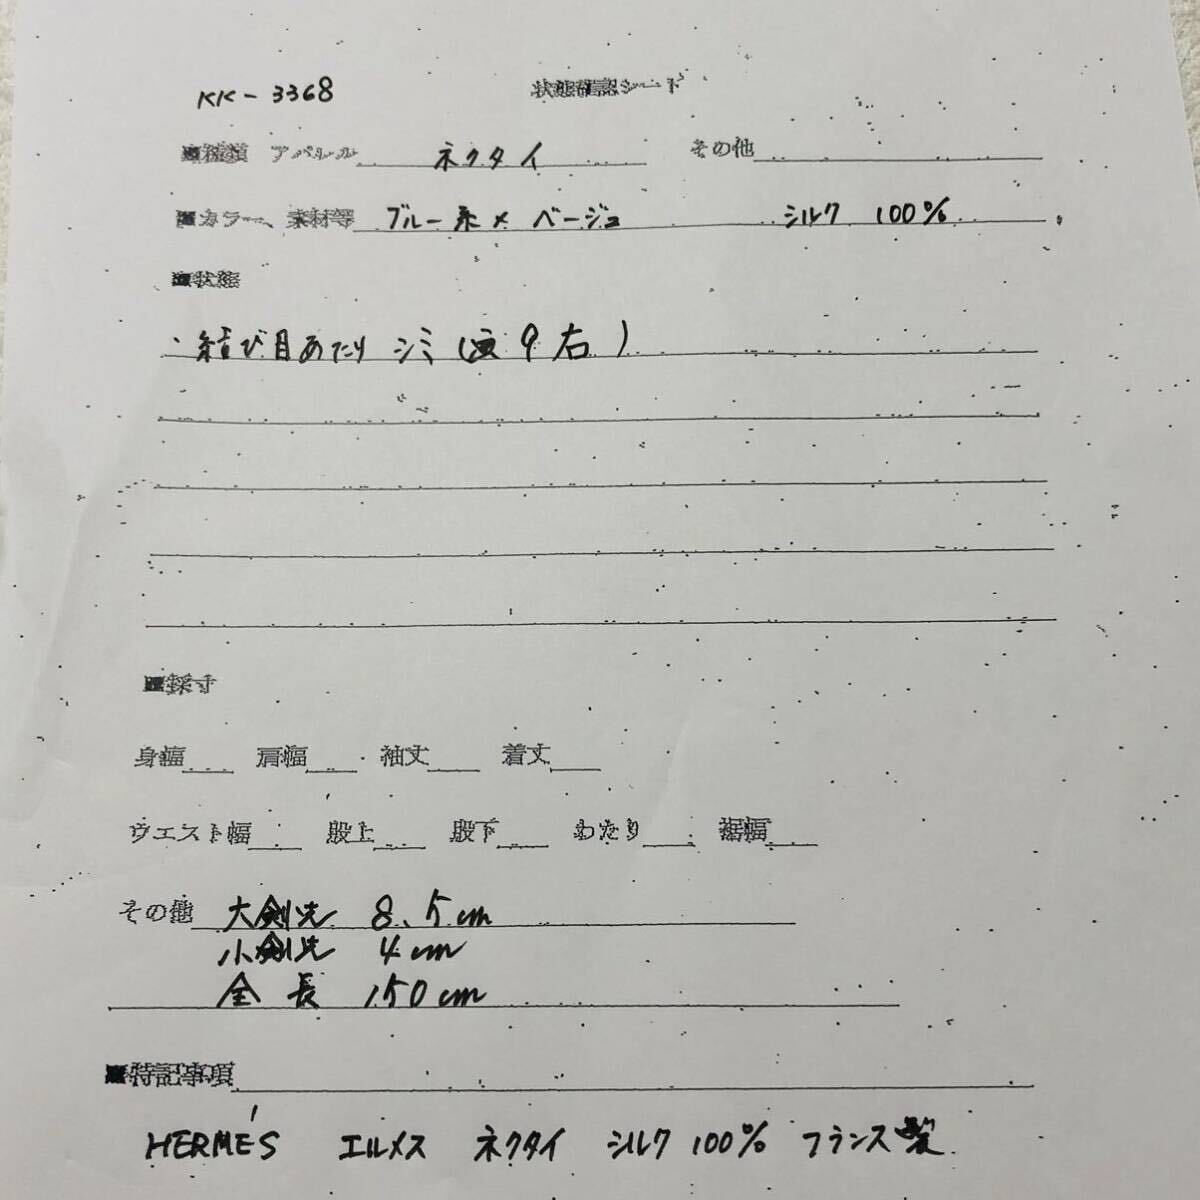 KK-3368 状態確認シート
■種類 アパレル ネクタイ その他
■カラー、素材等 ブルー系×ベージュ シルク 100%
■状態
・結び目あたり シミ(画9右)
■採寸
身幅 肩幅 袖丈 着丈
ウエスト幅 股上 股下 わたり 裾幅
その他 大剣先 8.5cm
小剣先 4cm
全長 150cm
■特記事項
HERMÈS エルメス ネクタイ シルク 100% フランス製